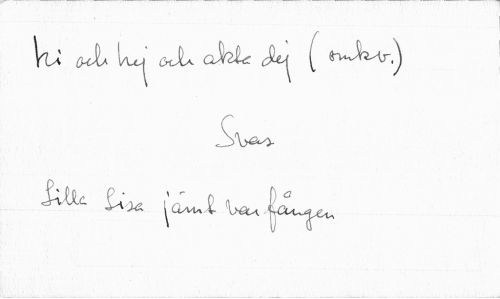 Hi och hej och akta dej (omkv.)
Svar
Lilla Lisa jämt var fången